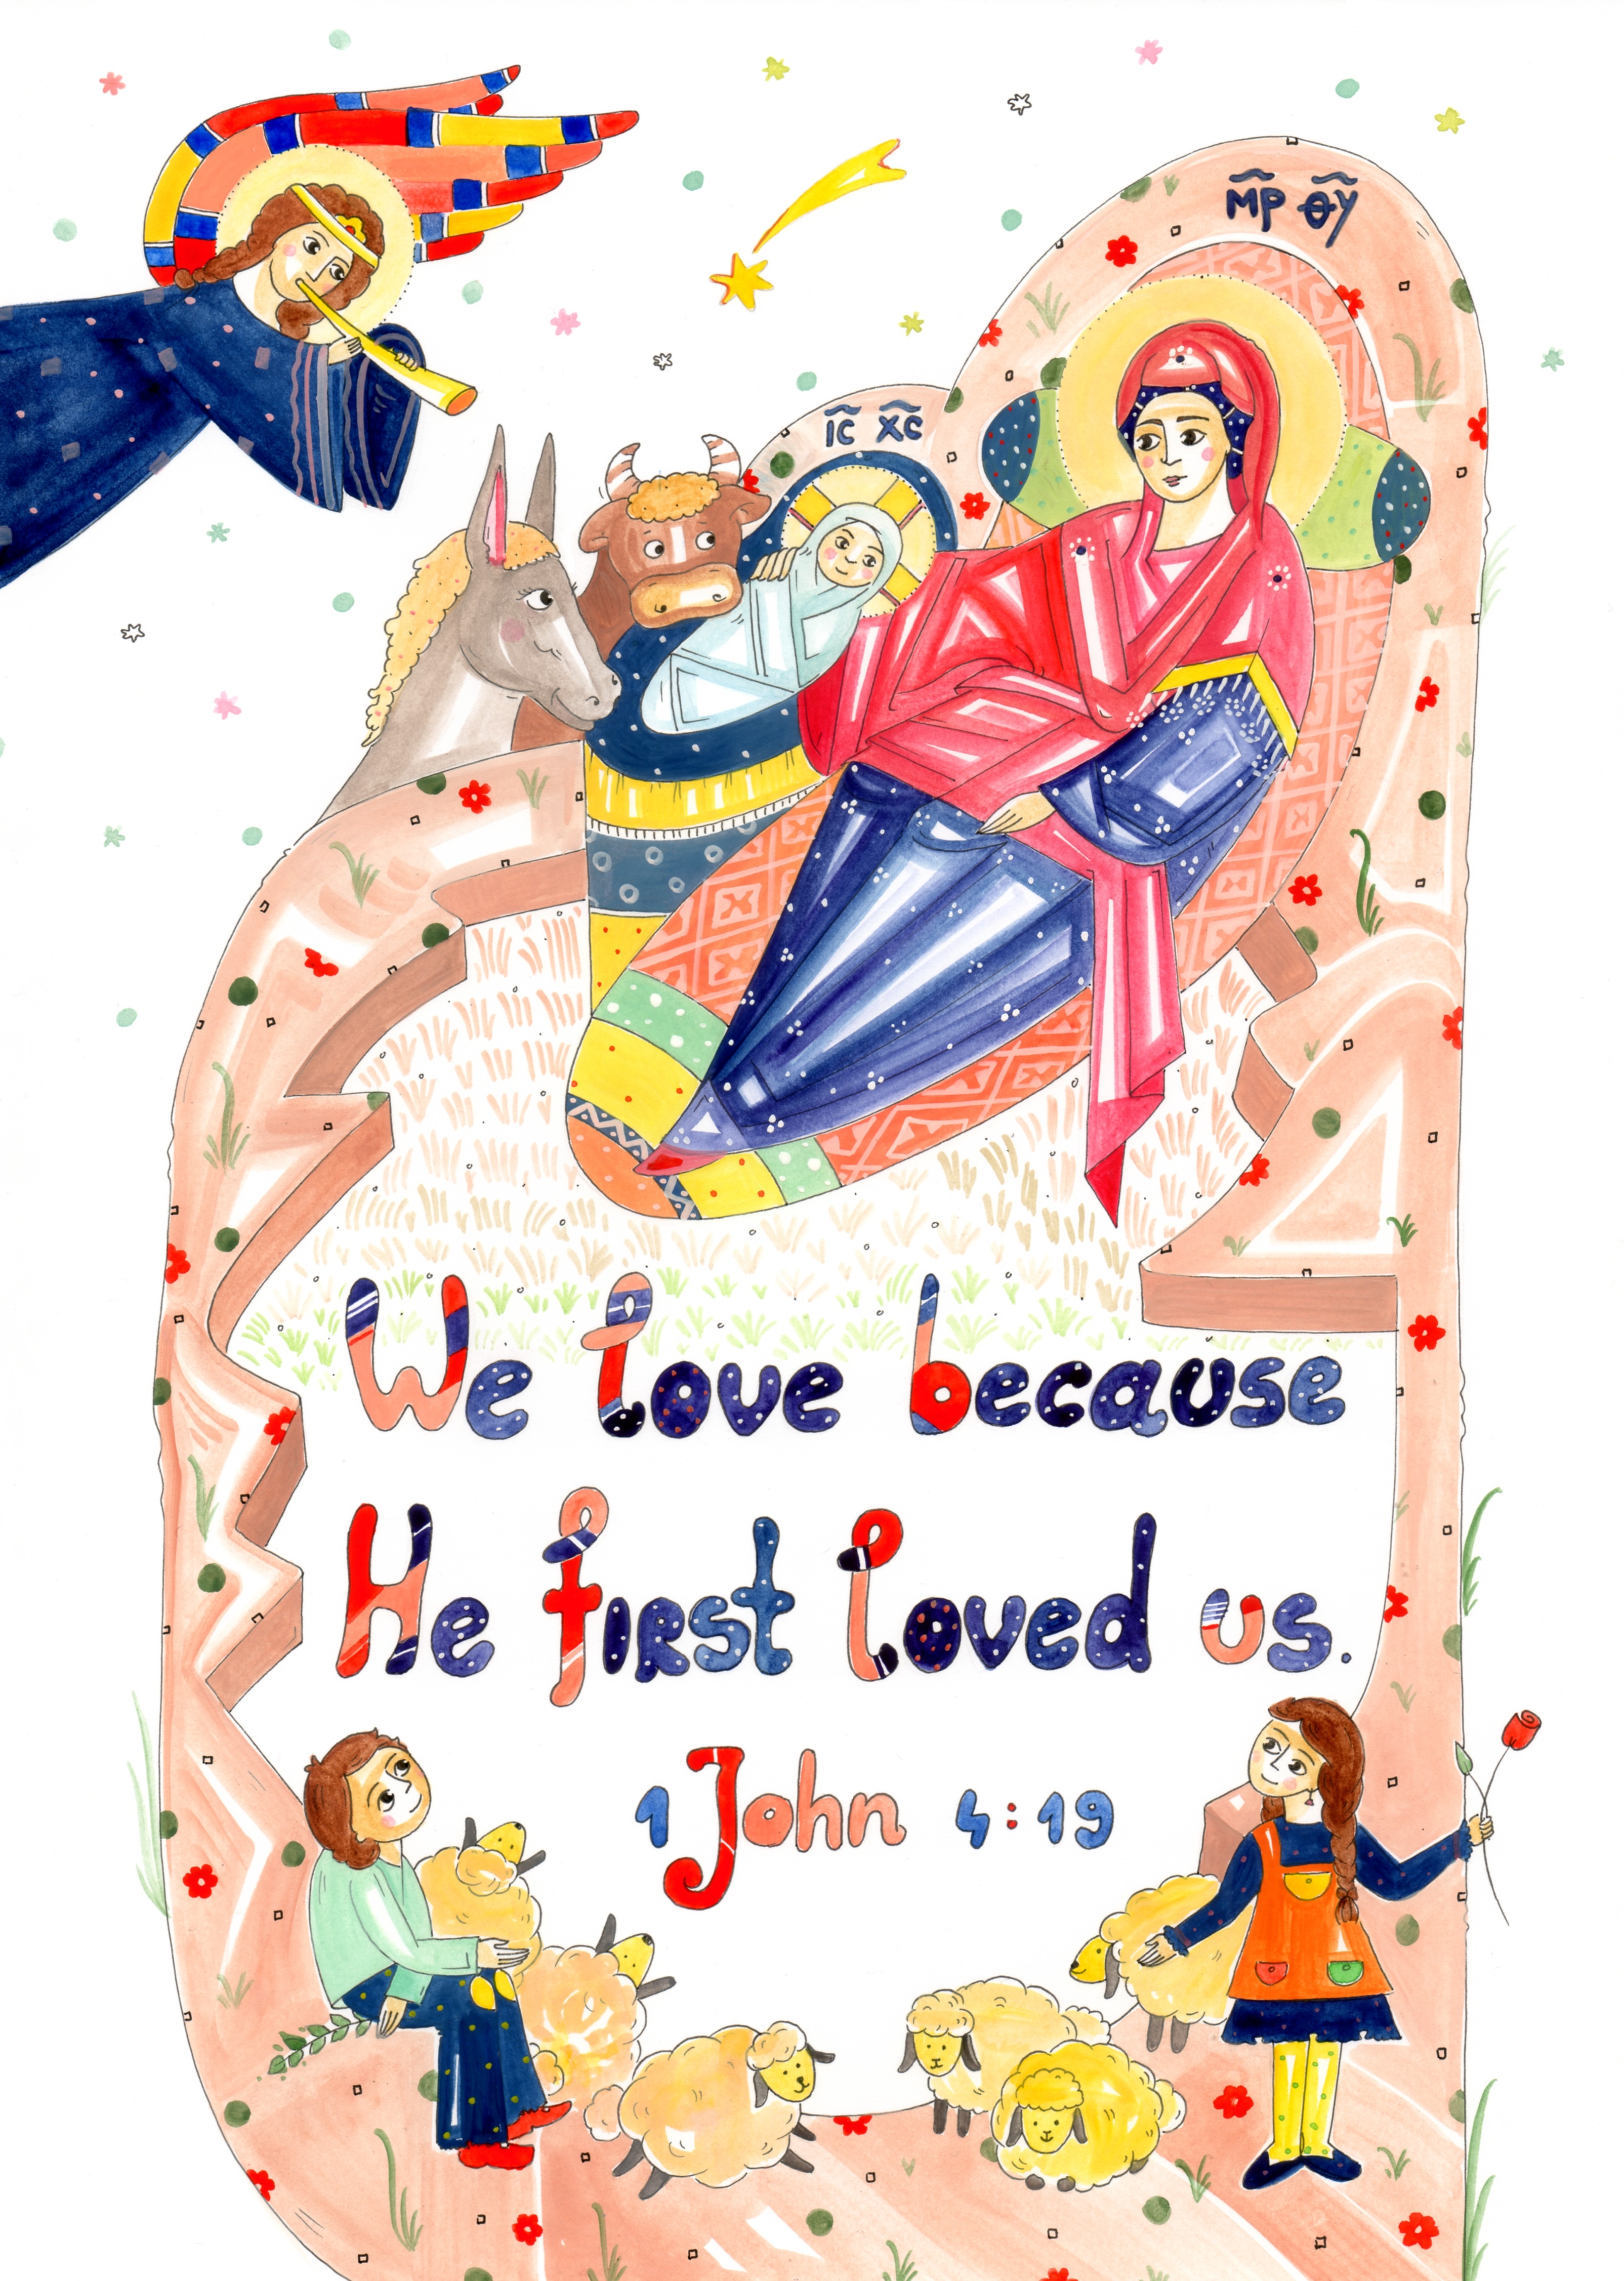 М҃Р Ѳ҃У
І҃С Х҃С
We love because
He first loved us.
1 John 4:19